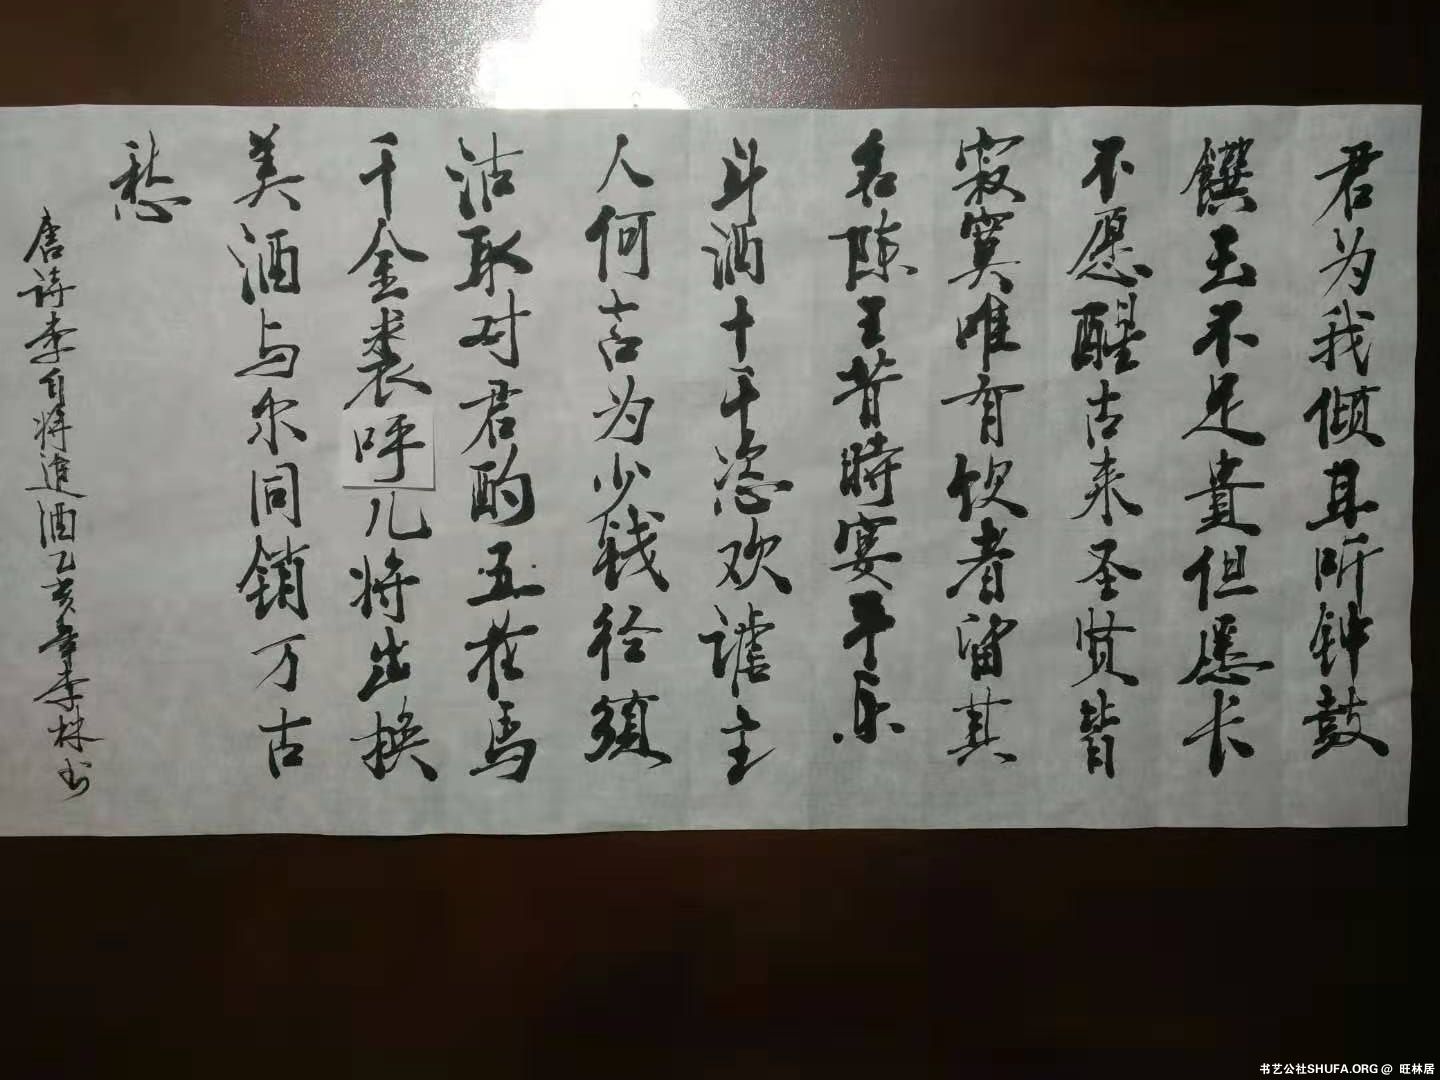 君为我倾耳听钟鼓
馔玉不足贵但愿长
不愿醒古来圣贤皆
寂寞唯有饮者留其
名陈王昔時宴平乐
斗酒十千恣欢谑主
人何言为少钱径须
沽取对君酌五花马
千金裘呼儿将出换
美酒与尔同销万古
愁
唐诗李白将进酒乙亥年李林书
书艺公社SHUFA.ORG @ 旺林居